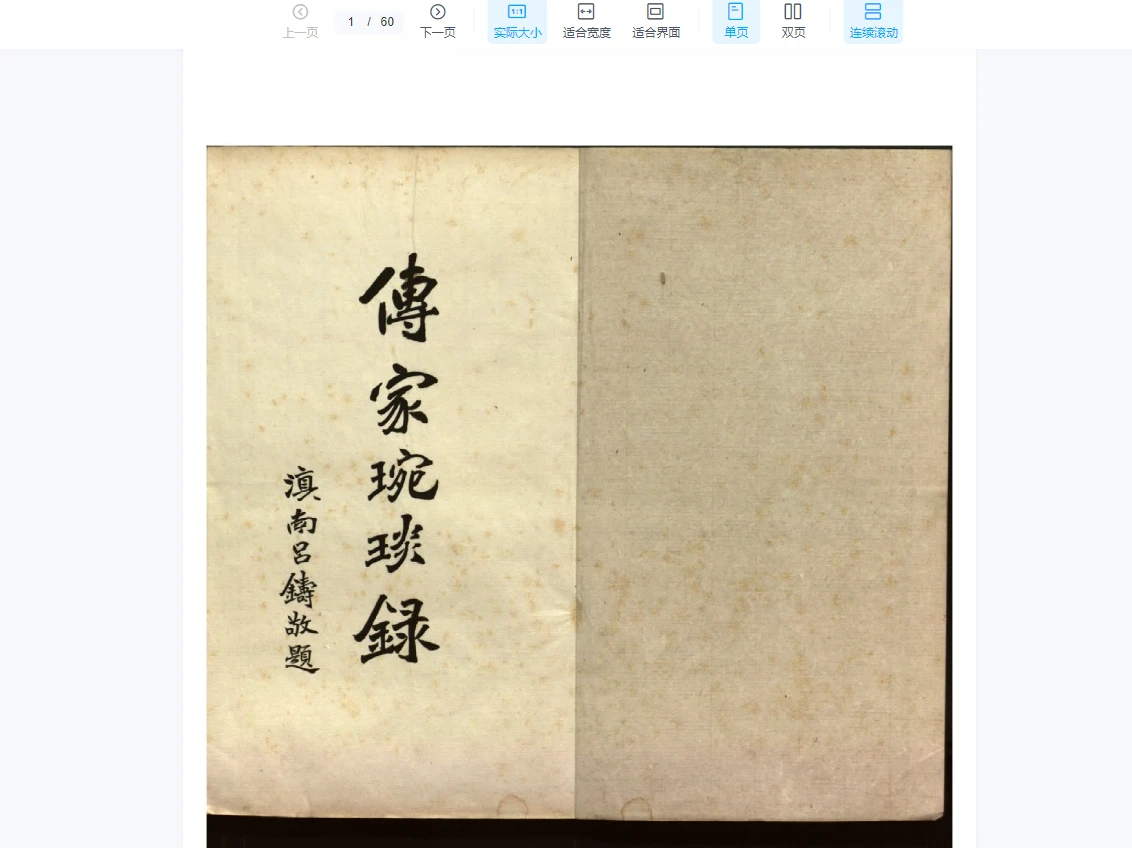 上一页
1 / 60
下一页
1:1
实际大小
适合宽度
适合界面
单页
双页
连续滚动
傳家琬琰録
滇南呂鑄敬題